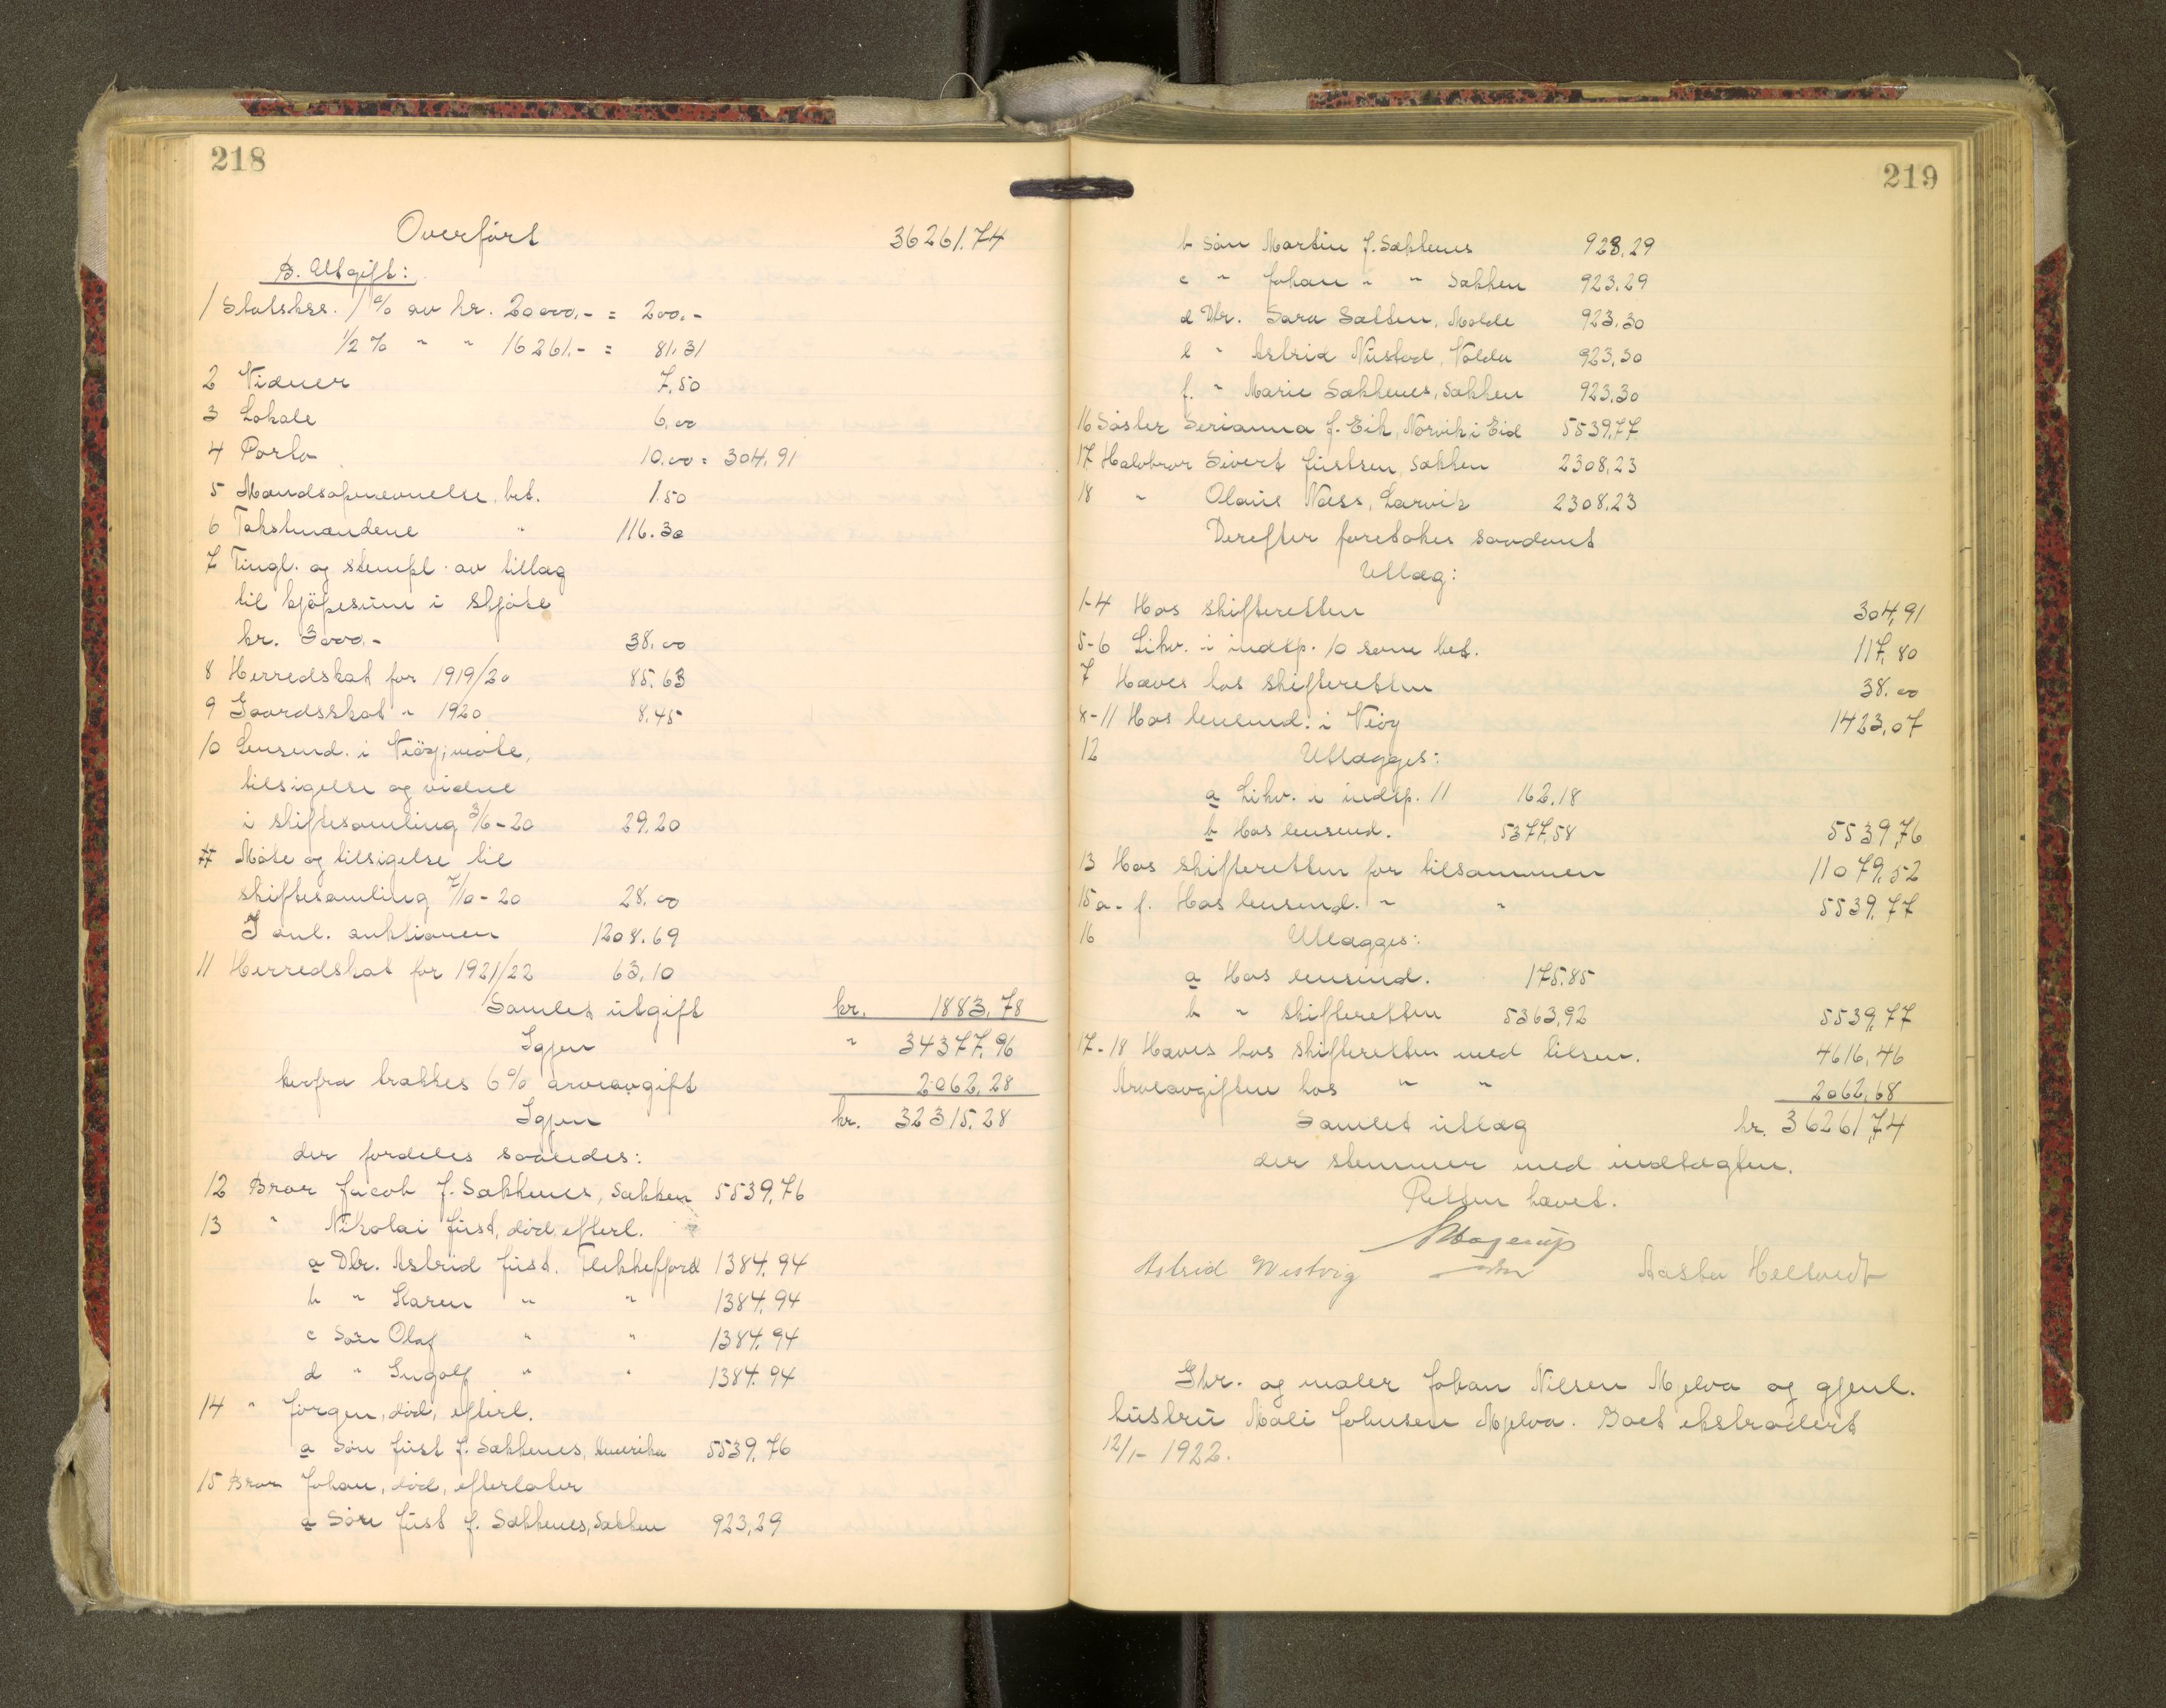 218
Overført 36261.74
B. Utgift:
1 Statsks. 1% av kr. 20000,- = 200.-
1/2 % " " 16261.- = 81.31
2 Vidner 7.50
3 Lokale 6.00
4 Porto 10.00 = 304.91
5 Mandsopnevnelse, bet. 1.50
6 Takstmændene " 116.30
7 Tingl. og stempl. av tillæg
til kjøpesum i skjøte
kr. 3000.- 38.00
8 Herredskat for 1919/20 85.63
9 Gaardsskat " 1920 8.45
10 Lensmd. i Veøy; møte,
tilsigelse og vidne
i skiftesamling 3/6-20 29.20
Møte og tilsigelse til
skiftesamling 7/10-20 28.00
I anl. auktionen 1208.69
11 Herredskat for 1921/22 63.10
Samlet utgift kr. 1883.78
Igjen " 34377.96
herfra trækkes 6% arveavgift 2062.28
Igjen kr. 32315.28
der fordeles saaledes:
12 Bror Jacob J. Sækkenes, Sækken 5539.76
13 " Nikolai Just, død, efterl.
a Dtr. Astrid Just. Flekkefjord 1384.94
b " Karen " " 1384.94
c Søn Olaf " " 1384.94
d " Ingolf " " 1384.94
14 " Jørgen, død, efterl.
a Søn Just J. Sækkenes, Amerika 5539.76
15 Bror Johan, død, efterlater
a Søn Just J. Sækkenes, Sækken 923,29
219
b Søn Martin J. Sækkenes 923.29
c " Johan " " Sækken 923.29
d Dtr. Sara Sætten, Molde 923.30
e " Astrid Nustad, Volda 923,30
f. " Marie Sækkenes, Sækken 923.30
16 Søster Serianna J. Eik, Norvik i Eid 5539.77
17 Halvbror Sivert Justsen, Sækken 2308.23
18 " Olaus Næss, Larvik 2308.23
Derefter foretokes saadant
Utlæg:
1-4 Hos skifteretten 304,91
5-6 Likv. i indtp. 10 som bet. 117.80
7 Hæves hos skifteretten 38.00
8-11 Hos lensmd. i Veøy 1423,07
12 Utlægges:
a Likv. i indtp. 11 162.18
b Hos lensmd. 5377.58 5539,76
13 Hos skifteretten for tilsammen 11079.52
15 a-f. Hos lensmd. " " 5539.77
16 Utlægges:
a Hos lensmd. 175.85
b " skifteretten 5363,92 5539,77
17-18 Hæves hos skifteretten med tilsm. 4616.46
Arveavgiften hos " " 2062.68
Samlet utlæg kr. 36261,74
der stemmer med indtægten.
Retten hævet.
Astrid Westvig Aasta Heltvedt
Gbr. og maler Johan Nilsen Mjelva og gjenl.
hustru Mali Johnsen Mjelva. Boet ekstradert
12/1-1922.